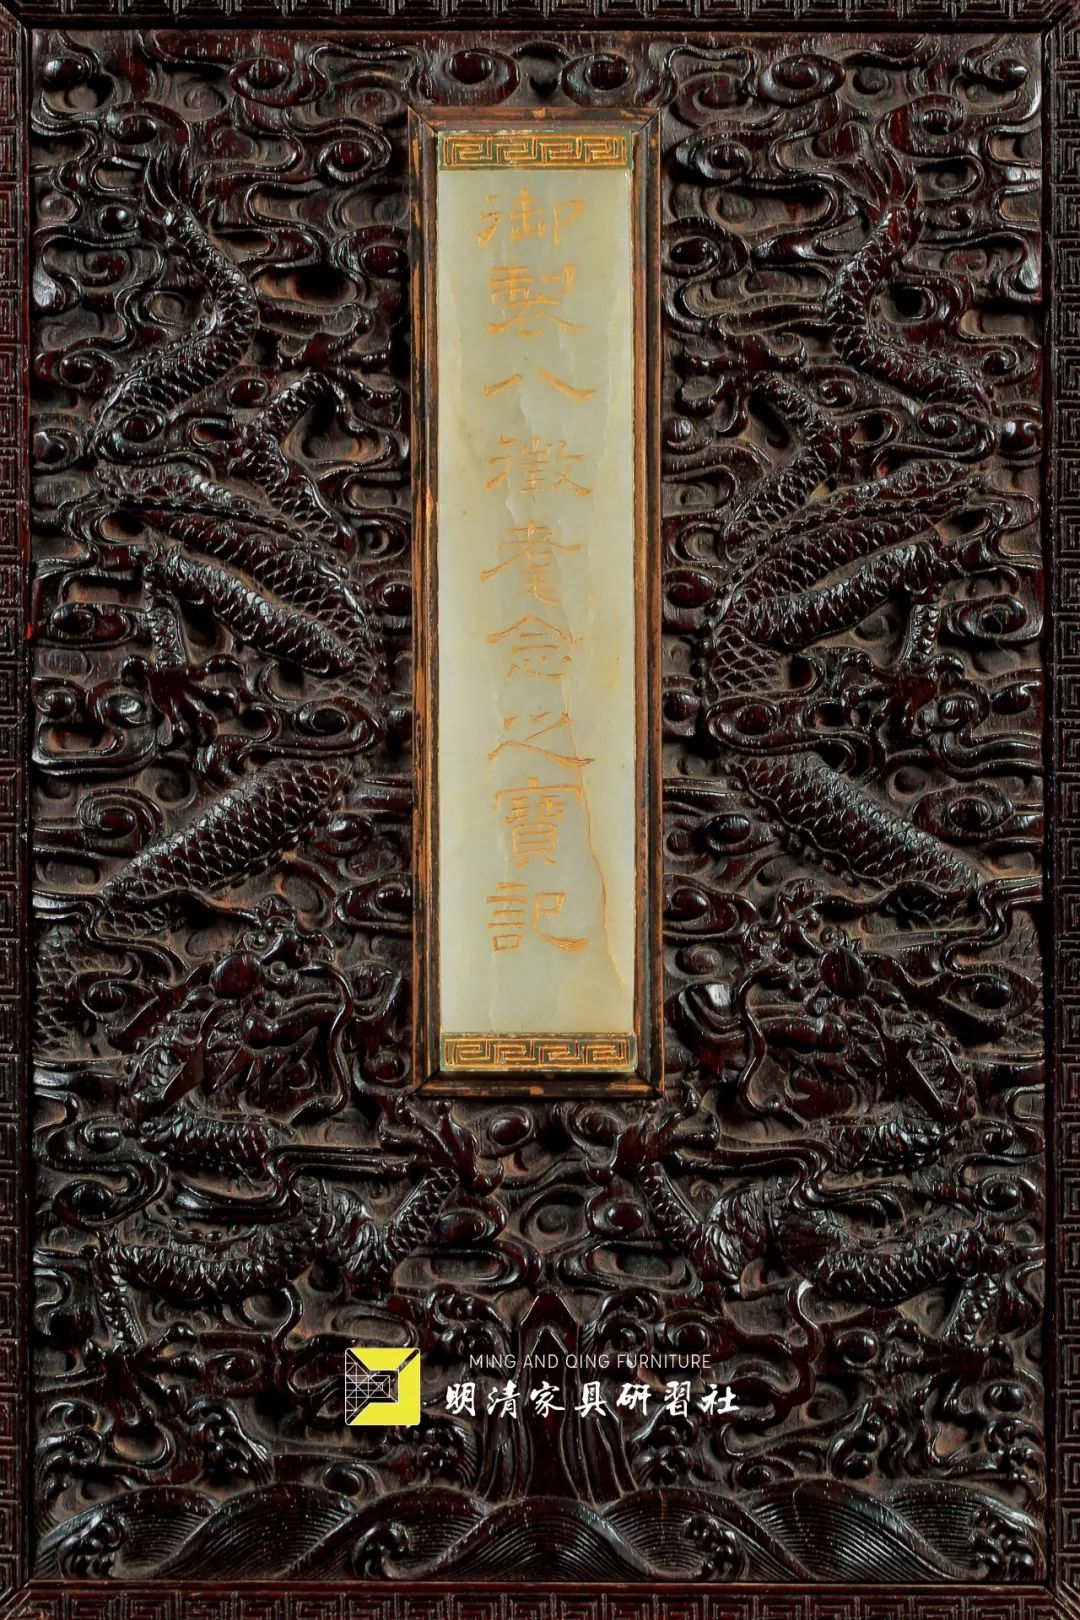 御製八徵耄念之寶記
MING AND QING FURNITURE
明清家具研習社